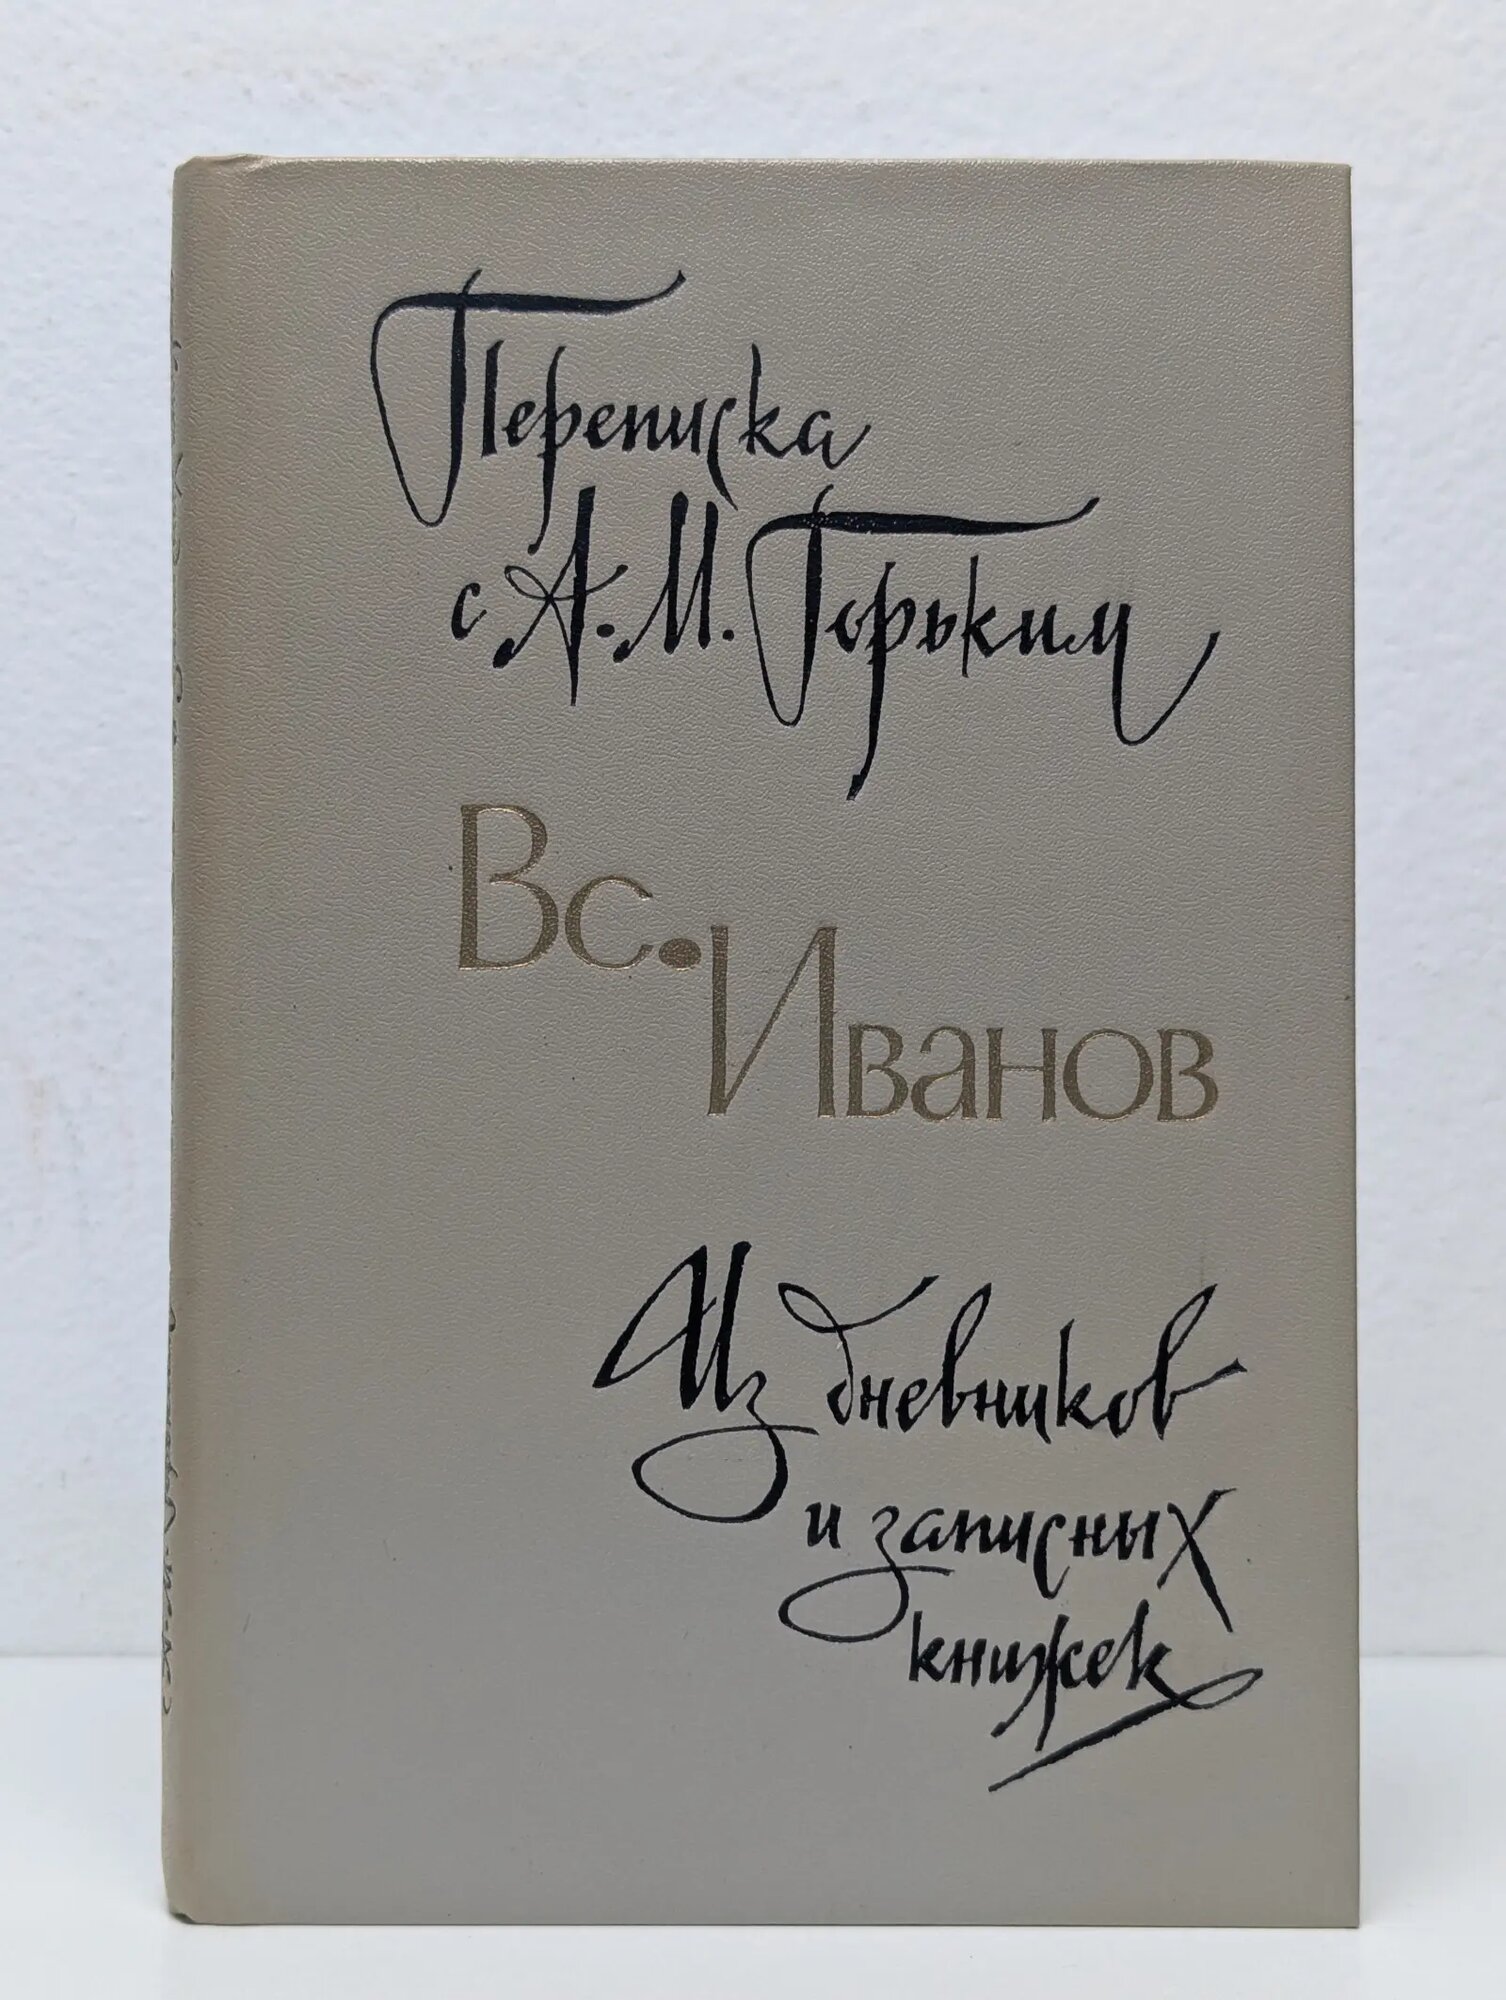 Переписка
с А. М. Горьким
Вс. Иванов
Из дневников
и записных
книжек